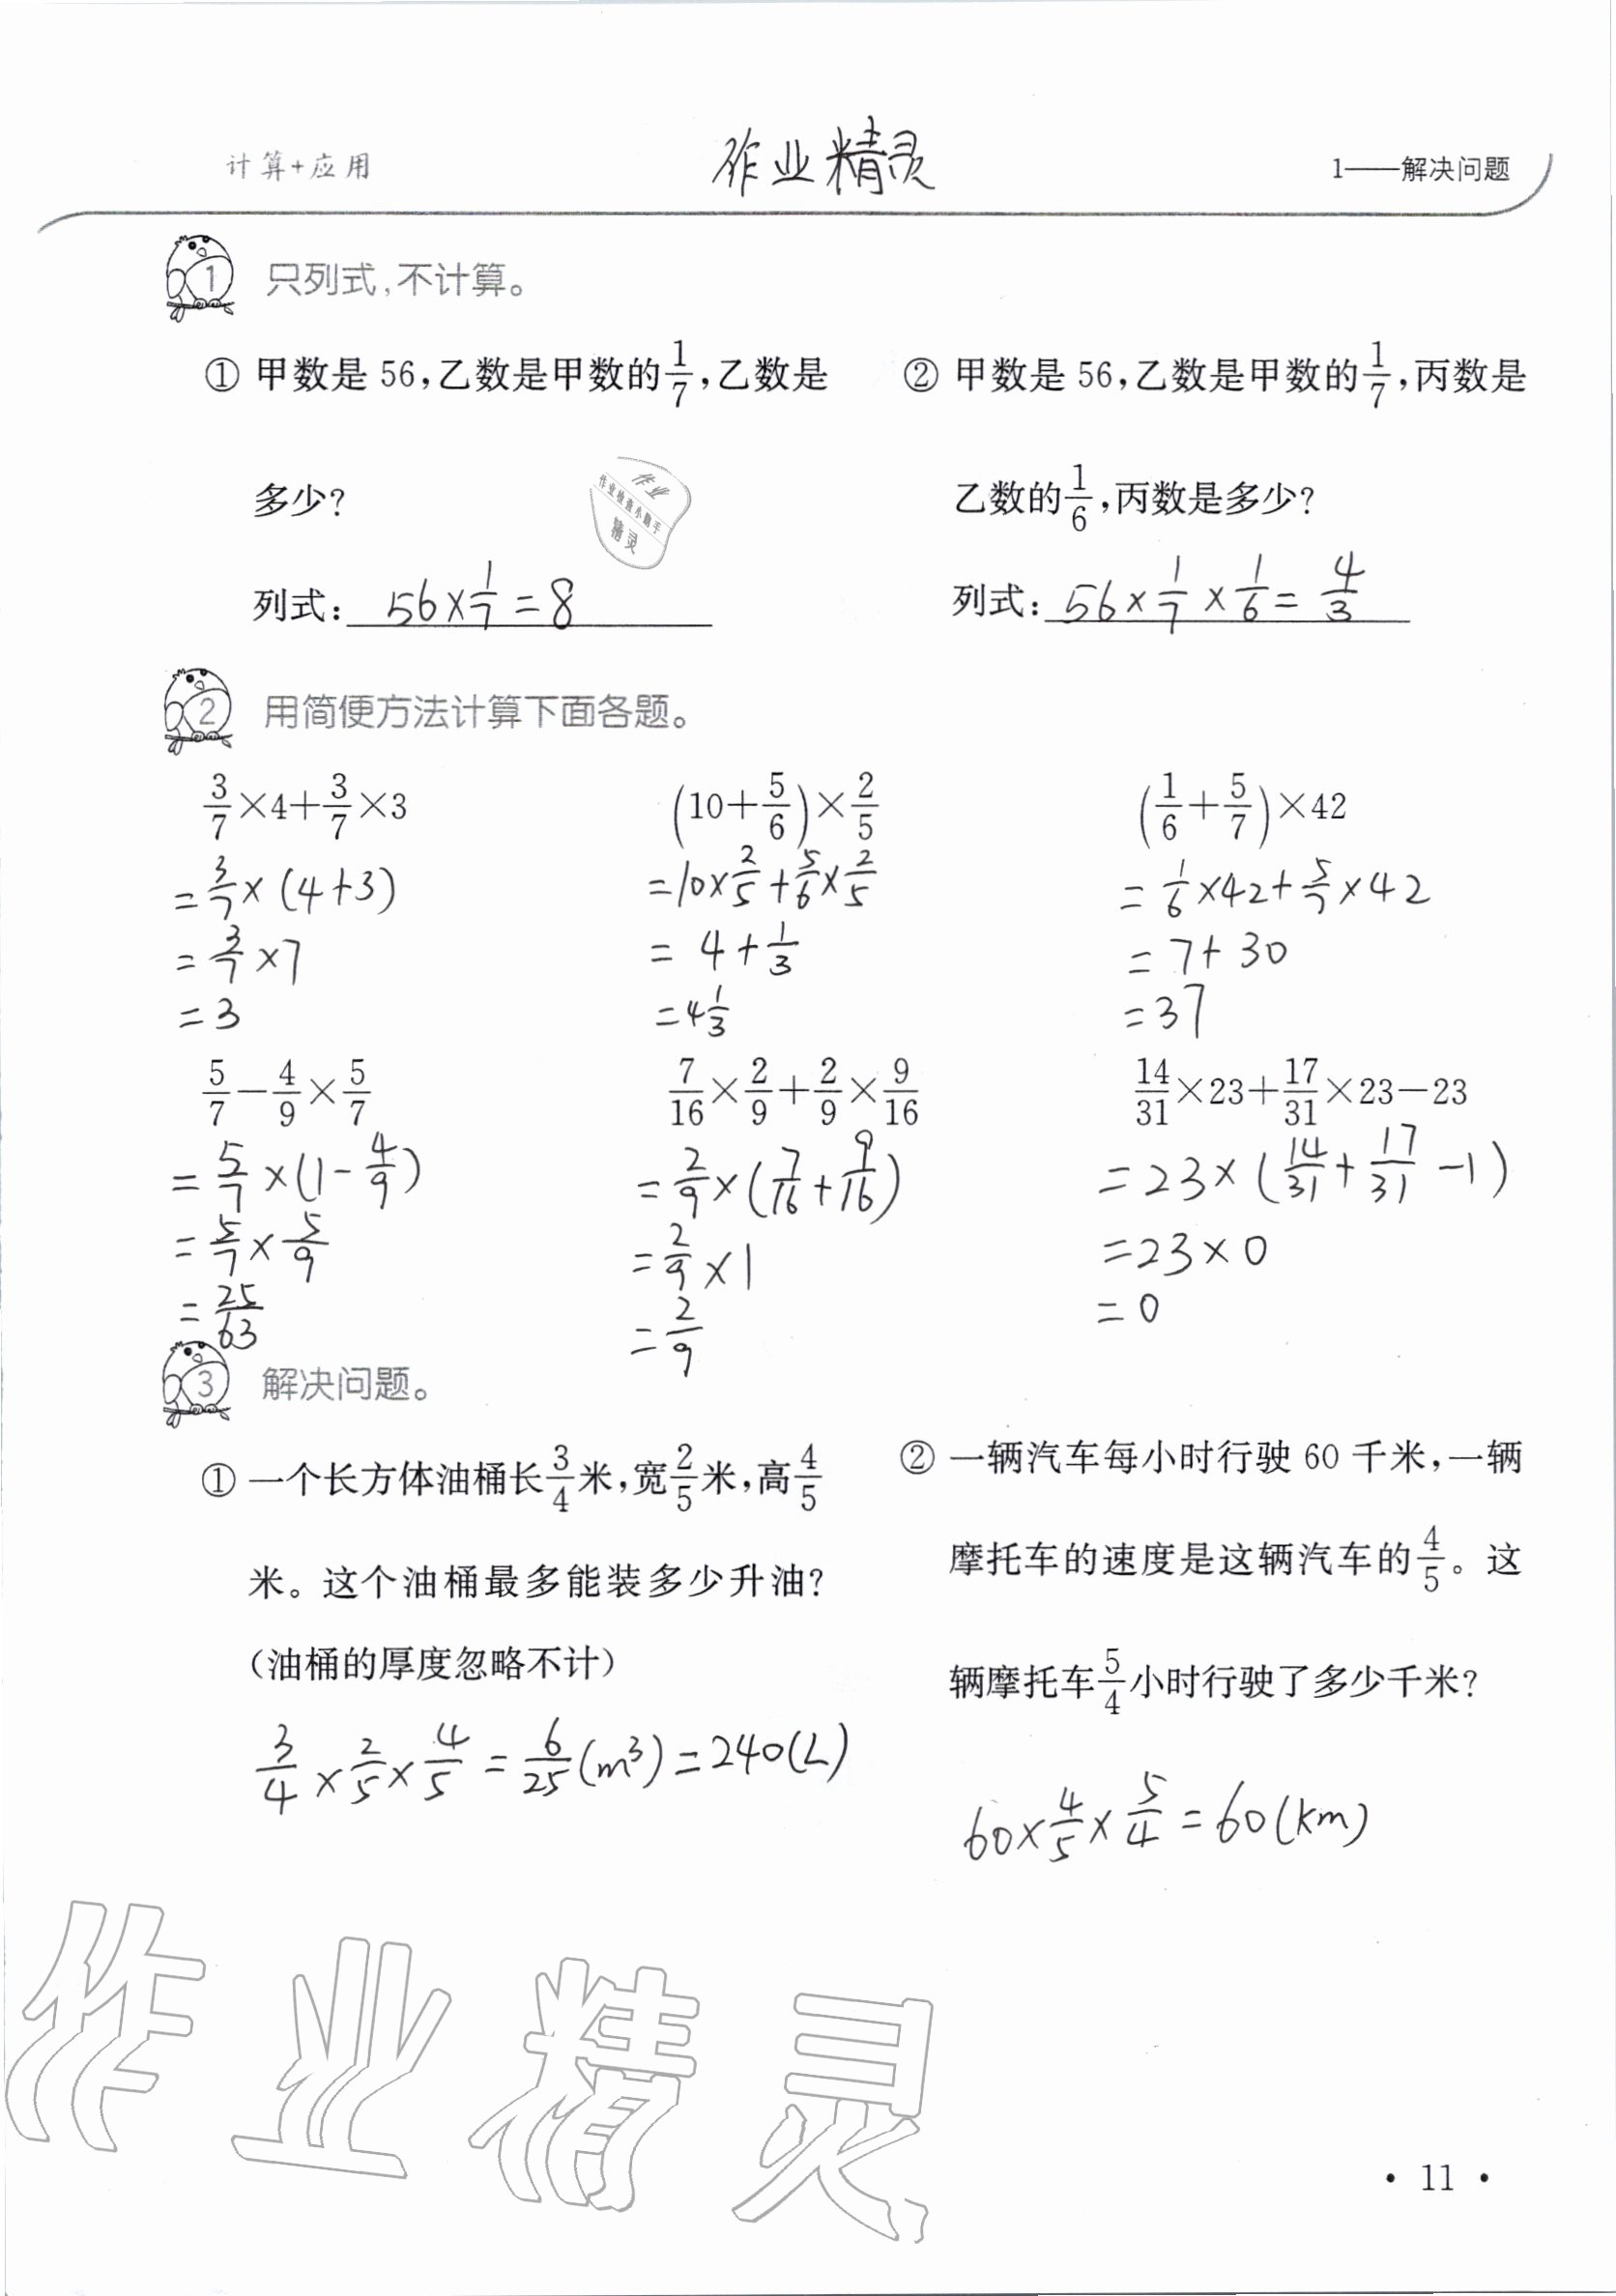 计算+应用
作业精灵
1——解决问题
1 只列式,不计算。
① 甲数是 56,乙数是甲数的1/7,乙数是
多少?
列式: 56×1/7=8
② 甲数是 56,乙数是甲数的1/7,丙数是
乙数的1/6,丙数是多少?
列式: 56×1/7×1/6=4/3
作业
作业检查小助手
精灵
2 用简便方法计算下面各题。
3/7×4+3/7×3
=3/7×(4+3)
=3/7×7
=3
(10+5/6)×2/5
=10×2/5+5/6×2/5
=4+1/3
=4 1/3
(1/6+5/7)×42
=1/6×42+5/7×42
=7+30
=37
5/7-4/9×5/7
=5/7×(1-4/9)
=5/7×5/9
=25/63
7/16×2/9+2/9×9/16
=2/9×(7/16+9/16)
=2/9×1
=2/9
14/31×23+17/31×23-23
=23×(14/31+17/31-1)
=23×0
=0
3 解决问题。
① 一个长方体油桶长3/4米,宽2/5米,高4/5
米。这个油桶最多能装多少升油?
(油桶的厚度忽略不计)
3/4×2/5×4/5=6/25(m³)=240(L)
② 一辆汽车每小时行驶 60 千米,一辆
摩托车的速度是这辆汽车的4/5。这
辆摩托车5/4小时行驶了多少千米?
60×4/5×5/4=60(km)
作业精灵
· 11 ·